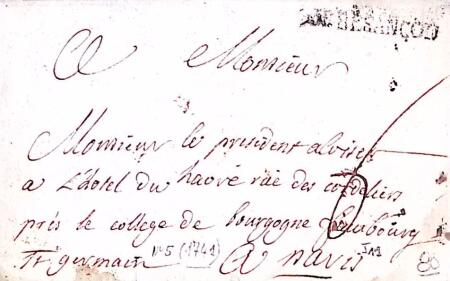 DE BESANÇON
A Monsieur
Monsieur le président alviset
a L'hotel du havre rüe des cordeliers
près le college de bourgogne fauxbourg
St germain n°5 (1741) A Paris